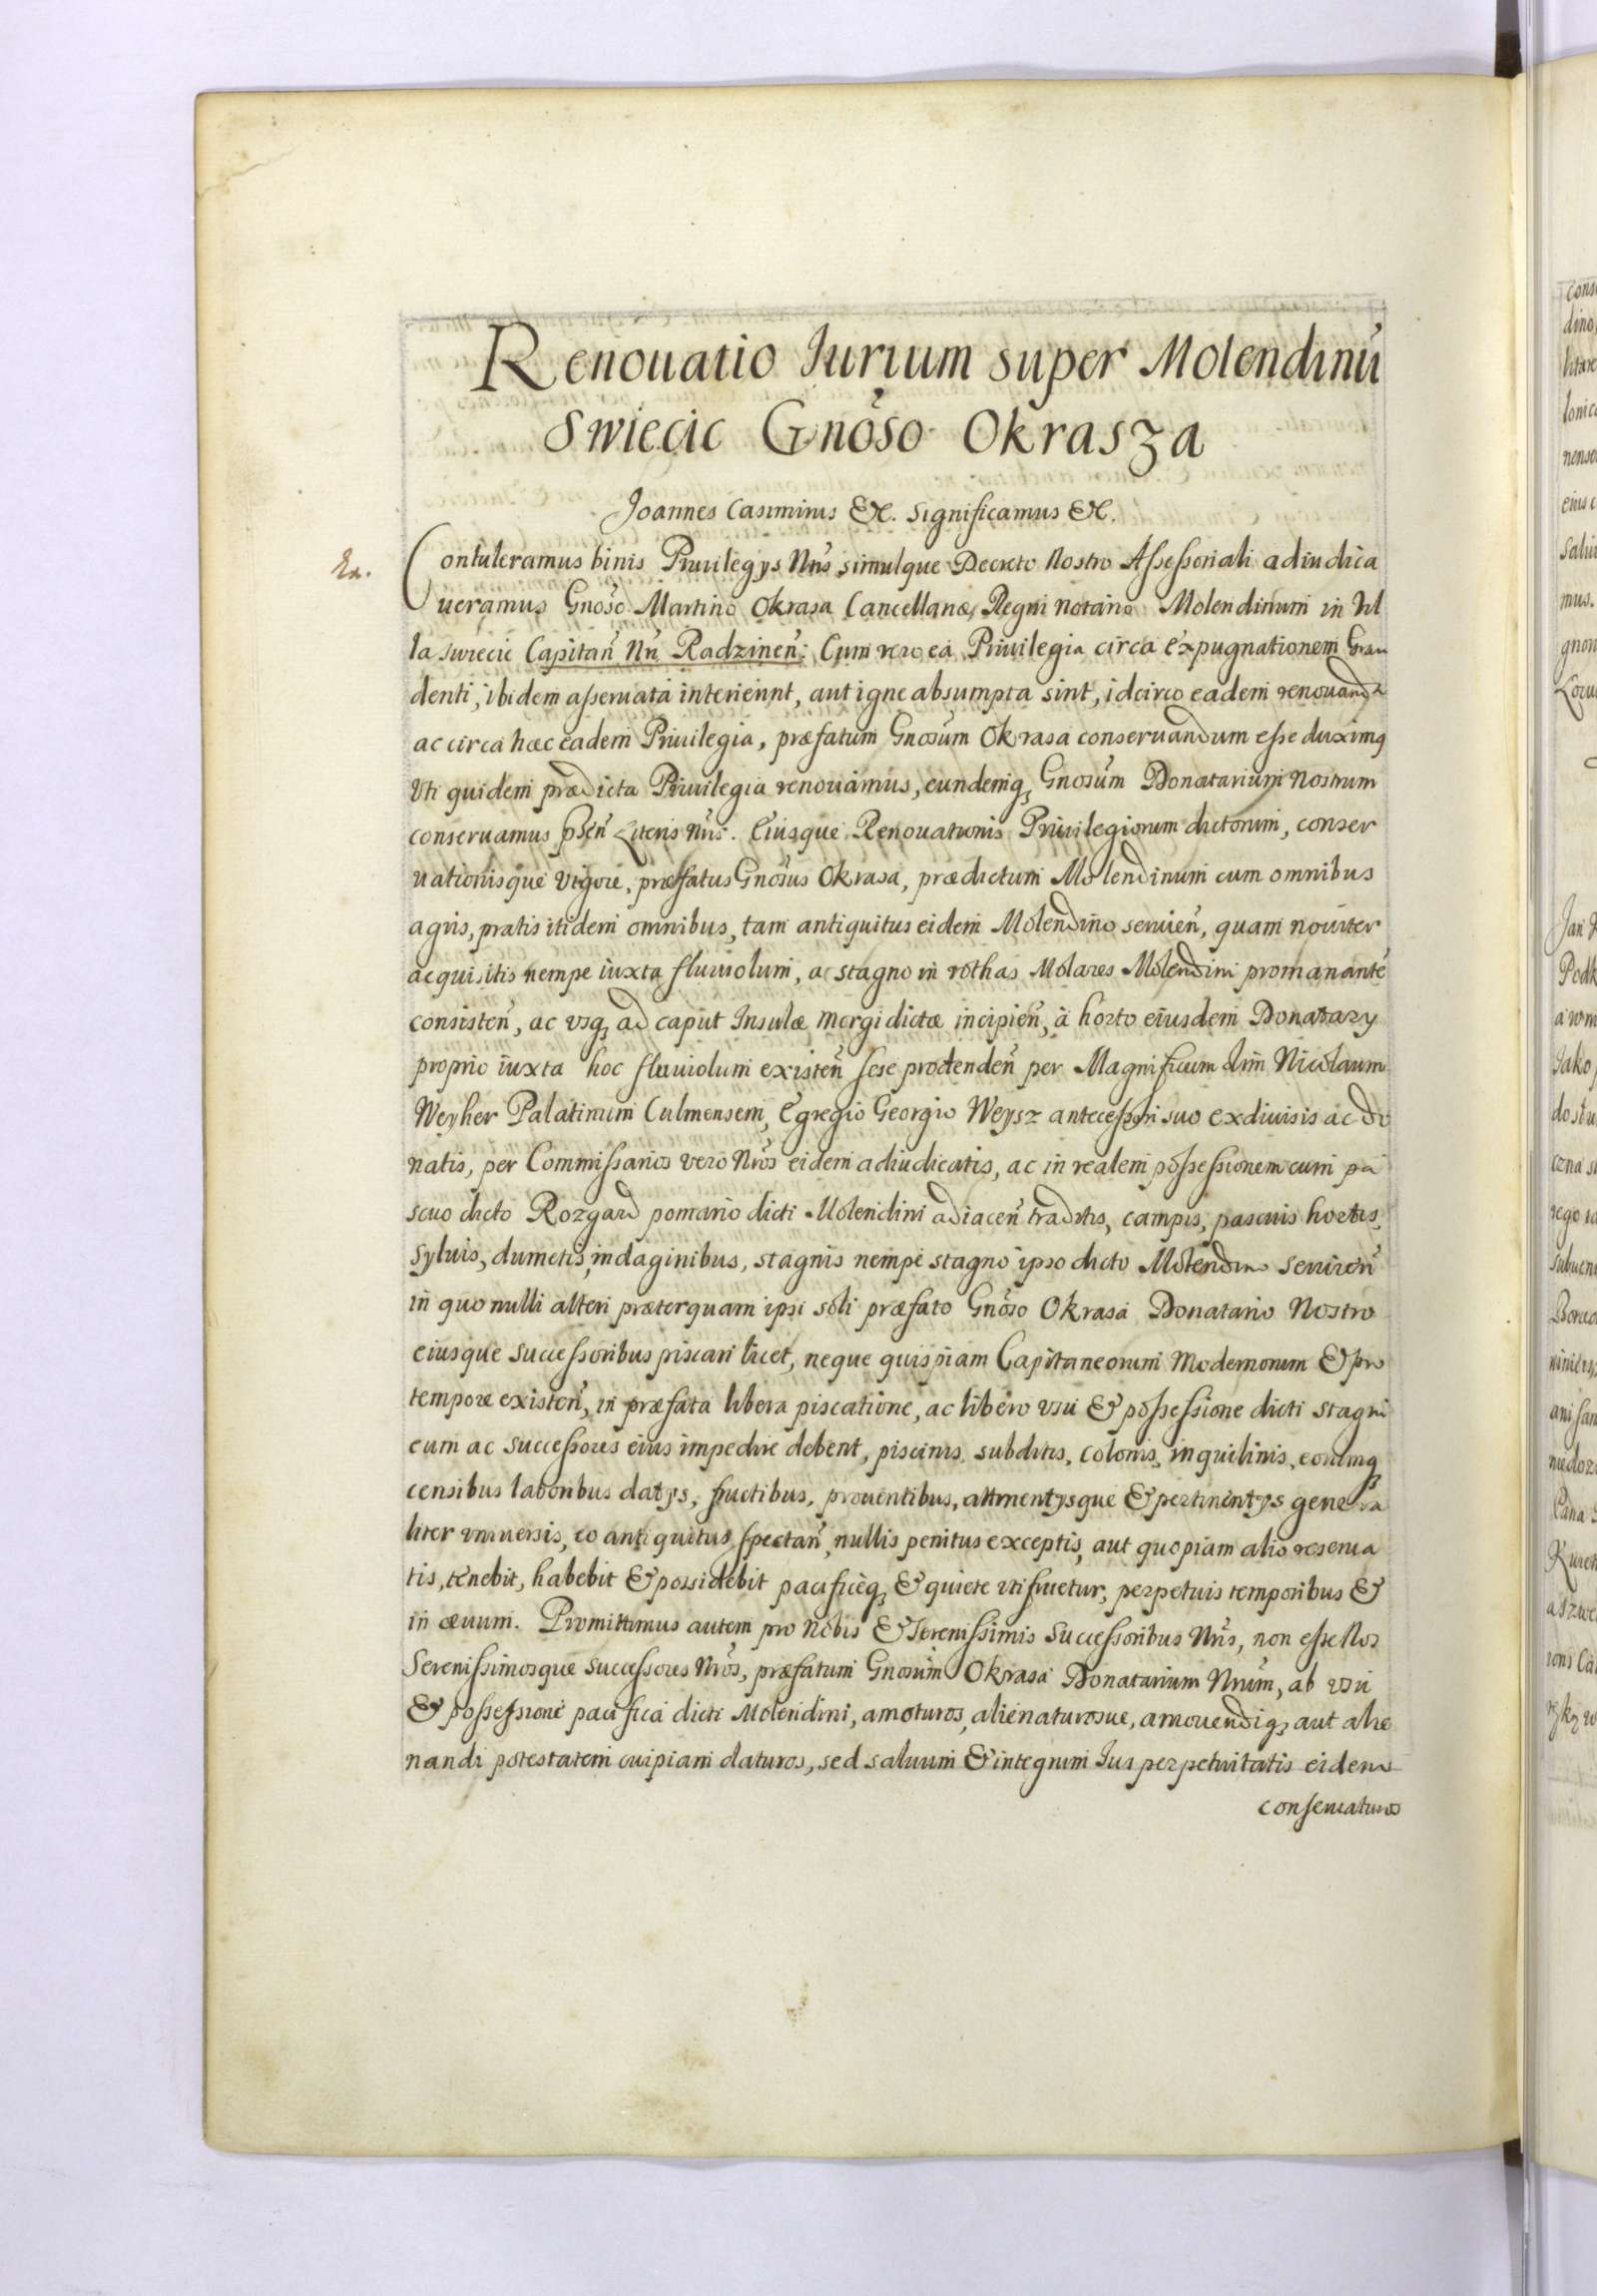 Renouatio Iurium super Molendinũ
Swiecic Gnõso Okrasza
Joannes Casimirus &c. Significamus &c.
Contuleramus binis Priuilegys Nrĩs simulque Decreto Nostro Assessoriali adiudica
ueramus Gnõso Martino Okrasa Cancellariæ Regni notario Molendinum in Vil
la Swiecic Capitañ Nrã Radzineñ: Cum vero ea Priuilegia circa expugnationem Grau
denti, ibidem asseruata interierint, aut igne absumpta sint, idcirco eadem renouanda
ac circa hæc eadem Priuilegia, præfatum Gnosũm Okrasa conseruandum esse duximq
Vti quidem prædicta Priuilegia renouamus, eundemq, Gnosũm Donatarium Nostrum
conseruamus pñseñ Literis nrĩs. Eiusque Renouationis Priuilegiorum dictorum, conser
uationisque vigore, præfatus Gnosũs Okrasa, prædictum Molendinum cum omnibus
agris, pratis itidem omnibus, tam antiquitus eidem Molendino serui eñ, quam nouiter
acquisitis nempe iuxta fluuiolum, a stagno in rothas Molares Molendini promanante
consisteñ, ac vsq, ad caput Insulæ mergi dictæ incipieñ, à horto eiusdem Donatary
proprio iuxta hoc fluuiolum existeñ sese protendeñ per Magnificum olim Nicolaum
Weyher Palatinum Culmensem, Egregio Georgio Weysz antecessori suo exdiuisis ac do
natis, per Commissarios vero Nrõs eidem adiudicatis, ac in realem possessionem cum pa
scuo dicto Rozgard pomario dicti Molendini adiaceñ traditis, campis, pascuis hortis,
syluis, dumetis, indaginibus, stagnis nempe stagno ipso dicto Molendino seruieñ
in quo nulli alteri præterquam ipsi soli præfato Gnõso Okrasa Donatario Nostro
eiusque successoribus piscari licet, neque quispiam Capitaneorum Modernorum & pro
tempore existeñ, in præfata libera piscatione, ac libero vsu & possessione dicti stagni
eum ac successores eius impedire debent, piscinis, subditis, colonis, inquilinis, eorumq
censibus laboribus datys, fructibus, prouentibus, attinentysque & pertinentys genera
liter vniuersis, eo antiquitus spectañ, nullis penitus exceptis, aut quopiam alio reserua
tis, tenebit, habebit & possidebit pacificèq, & quiete vtifruetur, perpetuis temporibus &
in æuum. Promittimus autem pro Nobis & Serenissimis Successoribus Nrĩs, non esse Nos
Serenissimosque successores Nrõs, præfatum Gnosũm Okrasa Donatarium Nrũm, ab vsu
& possessione pacifica dicti Molendini, amoturos, alienaturosue, amouendiq, aut alie
nandi potestatem cuipiam daturos, sed saluum & integrum Ius perpetuitatis eidem
conseruaturos